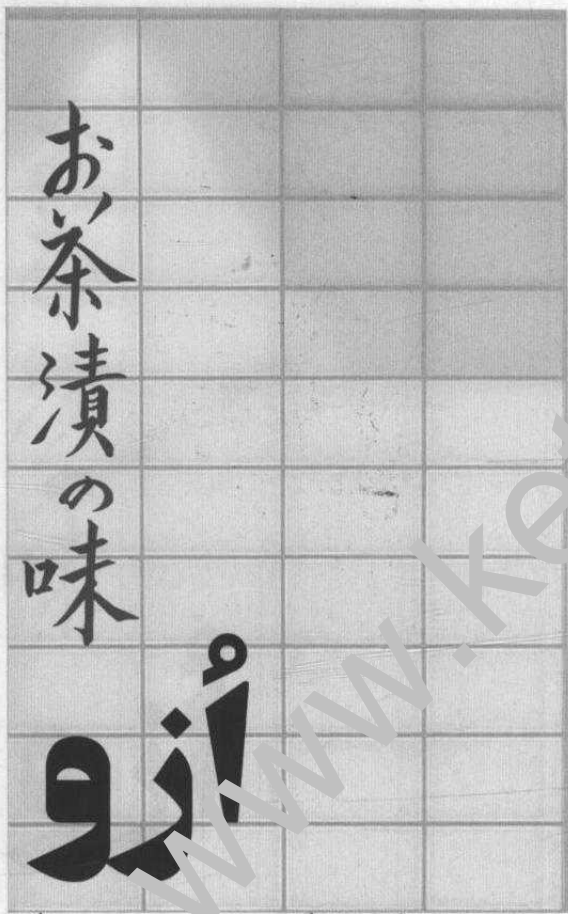 お茶漬の味
اُزو
www.ke